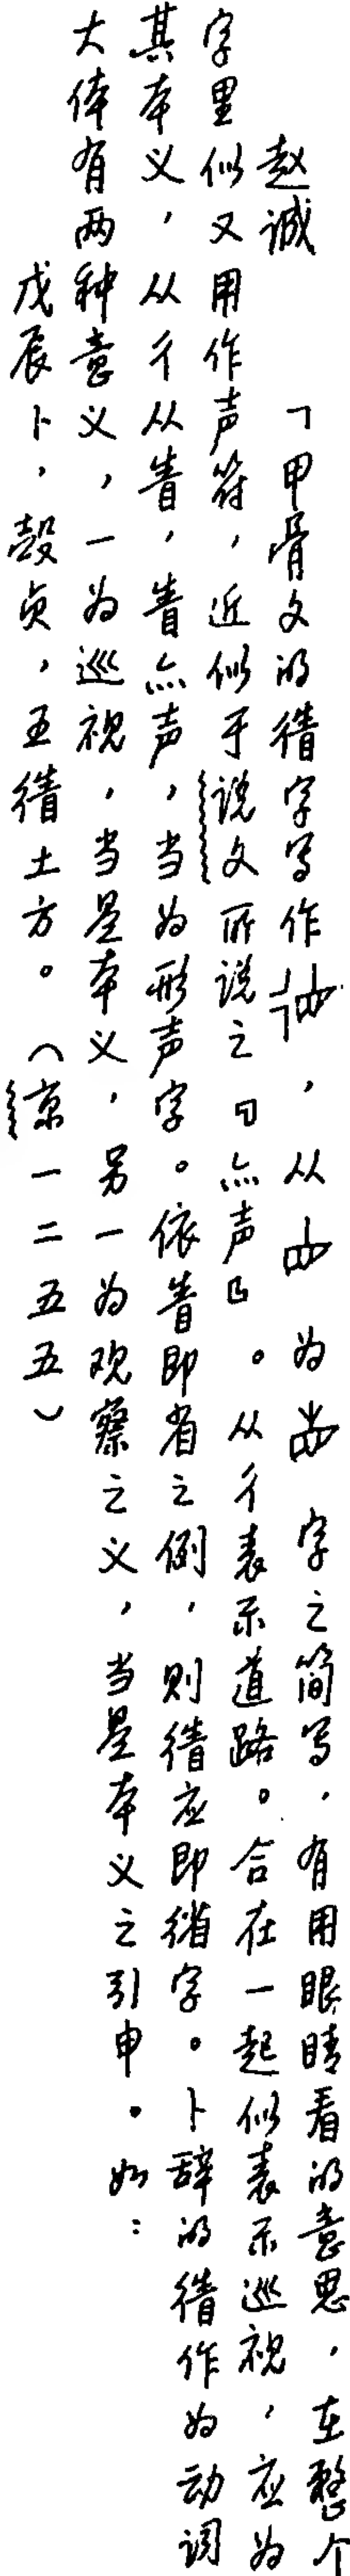 赵诚 「甲骨文的徝字写作，从为字之简写，有用眼睛看的意思，在整个
字里似又用作声符，近似于说文所说之『亦声』。从彳表示道路。合在一起似表示巡视，应为
其本义，从彳从眚，眚亦声，当为形声字。依眚即省之例，则㣮应即㨘字。卜辞的㣮作为动词
大体有两种意义，一为巡视，当是本义，另一为观察之义，当是本义之引申。如：
戊辰卜，㱿贞，王㣮土方。（京一二五五）